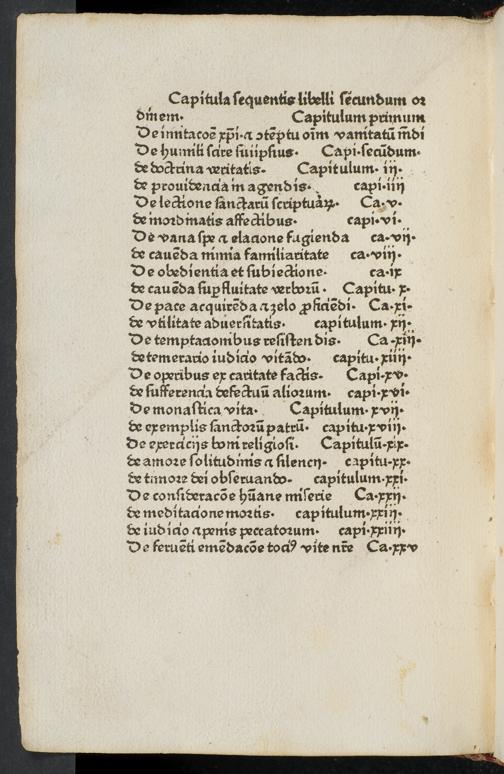 Capitula sequentis libelli sēcundum or
dinem. Capitulum primum
De imitacoē xp̄i. ⁊ ꝯtēptu oīm vanitatū m̄di
De humili scire suiipsius. Capi. secūdum.
de doctrina veritatis. Capitulum. iij.
de prouidencia in agendis. capi. iiij
De lectione sanctarū scripturarꝝ. Ca. v.
de inordinatis affectibus. capi. vi.
De vana spe ⁊ elacione fugienda ca. vij.
de cauēda nimia familiaritate ca. viij.
De obedientia et subiectione. ca. ix
de cauēda supfluitate verborū. Capitu. x.
De pace acquirēda ⁊ zelo ꝓficiēdi. Ca. xi.
de vtilitate aduersitatis. capitulum. xij.
De temptacionibus resistendis. Ca. xiij.
de temerario iudicio vitādo. capitu. xiiij.
De operibus ex caritate factis. Capi. xv.
de sufferencia defectuū aliorum. capi. xvi.
De monastica vita. Capitulum. xvij.
de exemplis sanctorū patrū. capitu. xviij.
De exercicijs boni religiosi. Capitulū. xix.
de amore solitudinis ⁊ silencij. capitu. xx.
de timore dei obseruando. capitulum. xxi.
De consideracōe hūane miserie Ca. xxij.
de meditacione mortis. capitulum. xxiij.
de iudicio ⁊ penis peccatorum. capi. xxiiij.
De feruēti emēdacōe tociꝰ vite nr̄e Ca. xxv